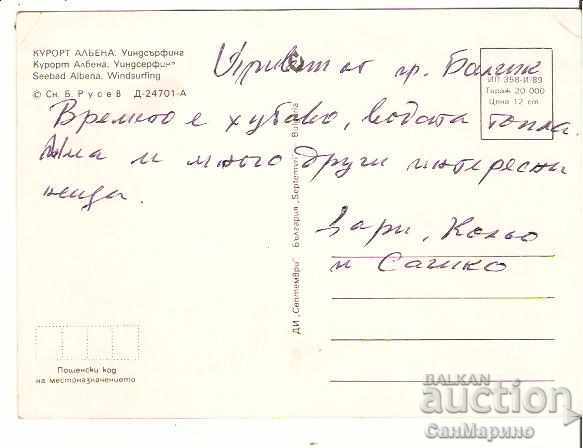 КУРОРТ АЛБЕНА. Уиндсърфинг
Курорт Албена. Уиндсерфинг
Seebad Albena. Windsurfing
© Сн. Б. Русев Д-24701-А
Привет от гр. Балчик
ИП 358-И/89
Тираж 20 000
Цена 12 ст.
Времето е хубаво, водата топла.
Има и много други интересни
неща.
Дари, Кольо
и Сашко
ДИ „Септември" България „Septemvri" Bulgaria
Пощенски код
на местоназначението
БАЛКАН
auction
СанМарино